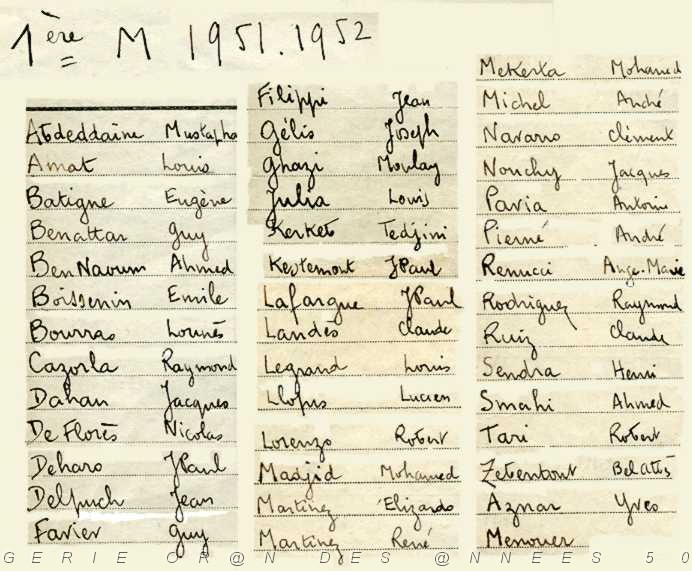 1ère M 1951.1952
Abdeddaine Mustapha
Amat Louis
Batigne Eugène
Benattar Guy
BenNaoum Ahmed
Boissenin Emile
Bourras Lounès
Cazorla Raymond
Dahan Jacques
De Florès Nicolas
Deharo JPaul
Delpuch Jean
Favier Guy
Filippi Jean
Gélis Joseph
Ghazi Moulay
Julia Louis
Kerkeb Tedjini
JPaul
Lafargue JPaul
Landès Claude
Legrand Louis
Llopis Lucien
Lorenzo Robert
Masjid Mohamed
Martinez Elizardo
Martinez René
Mekerta Mohamed
Michel André
Navarro Clément
Nouchy Jacques
Pavia Antoine
Pierné André
Renucci Ange-Marie
Rodriguez Raymond
Ruiz Claude
Sendra Henri
Smahi Ahmed
Tari Robert
Belabbès
Aznar Yves
Menouer
GERIE OR@N DES @NNEES 50